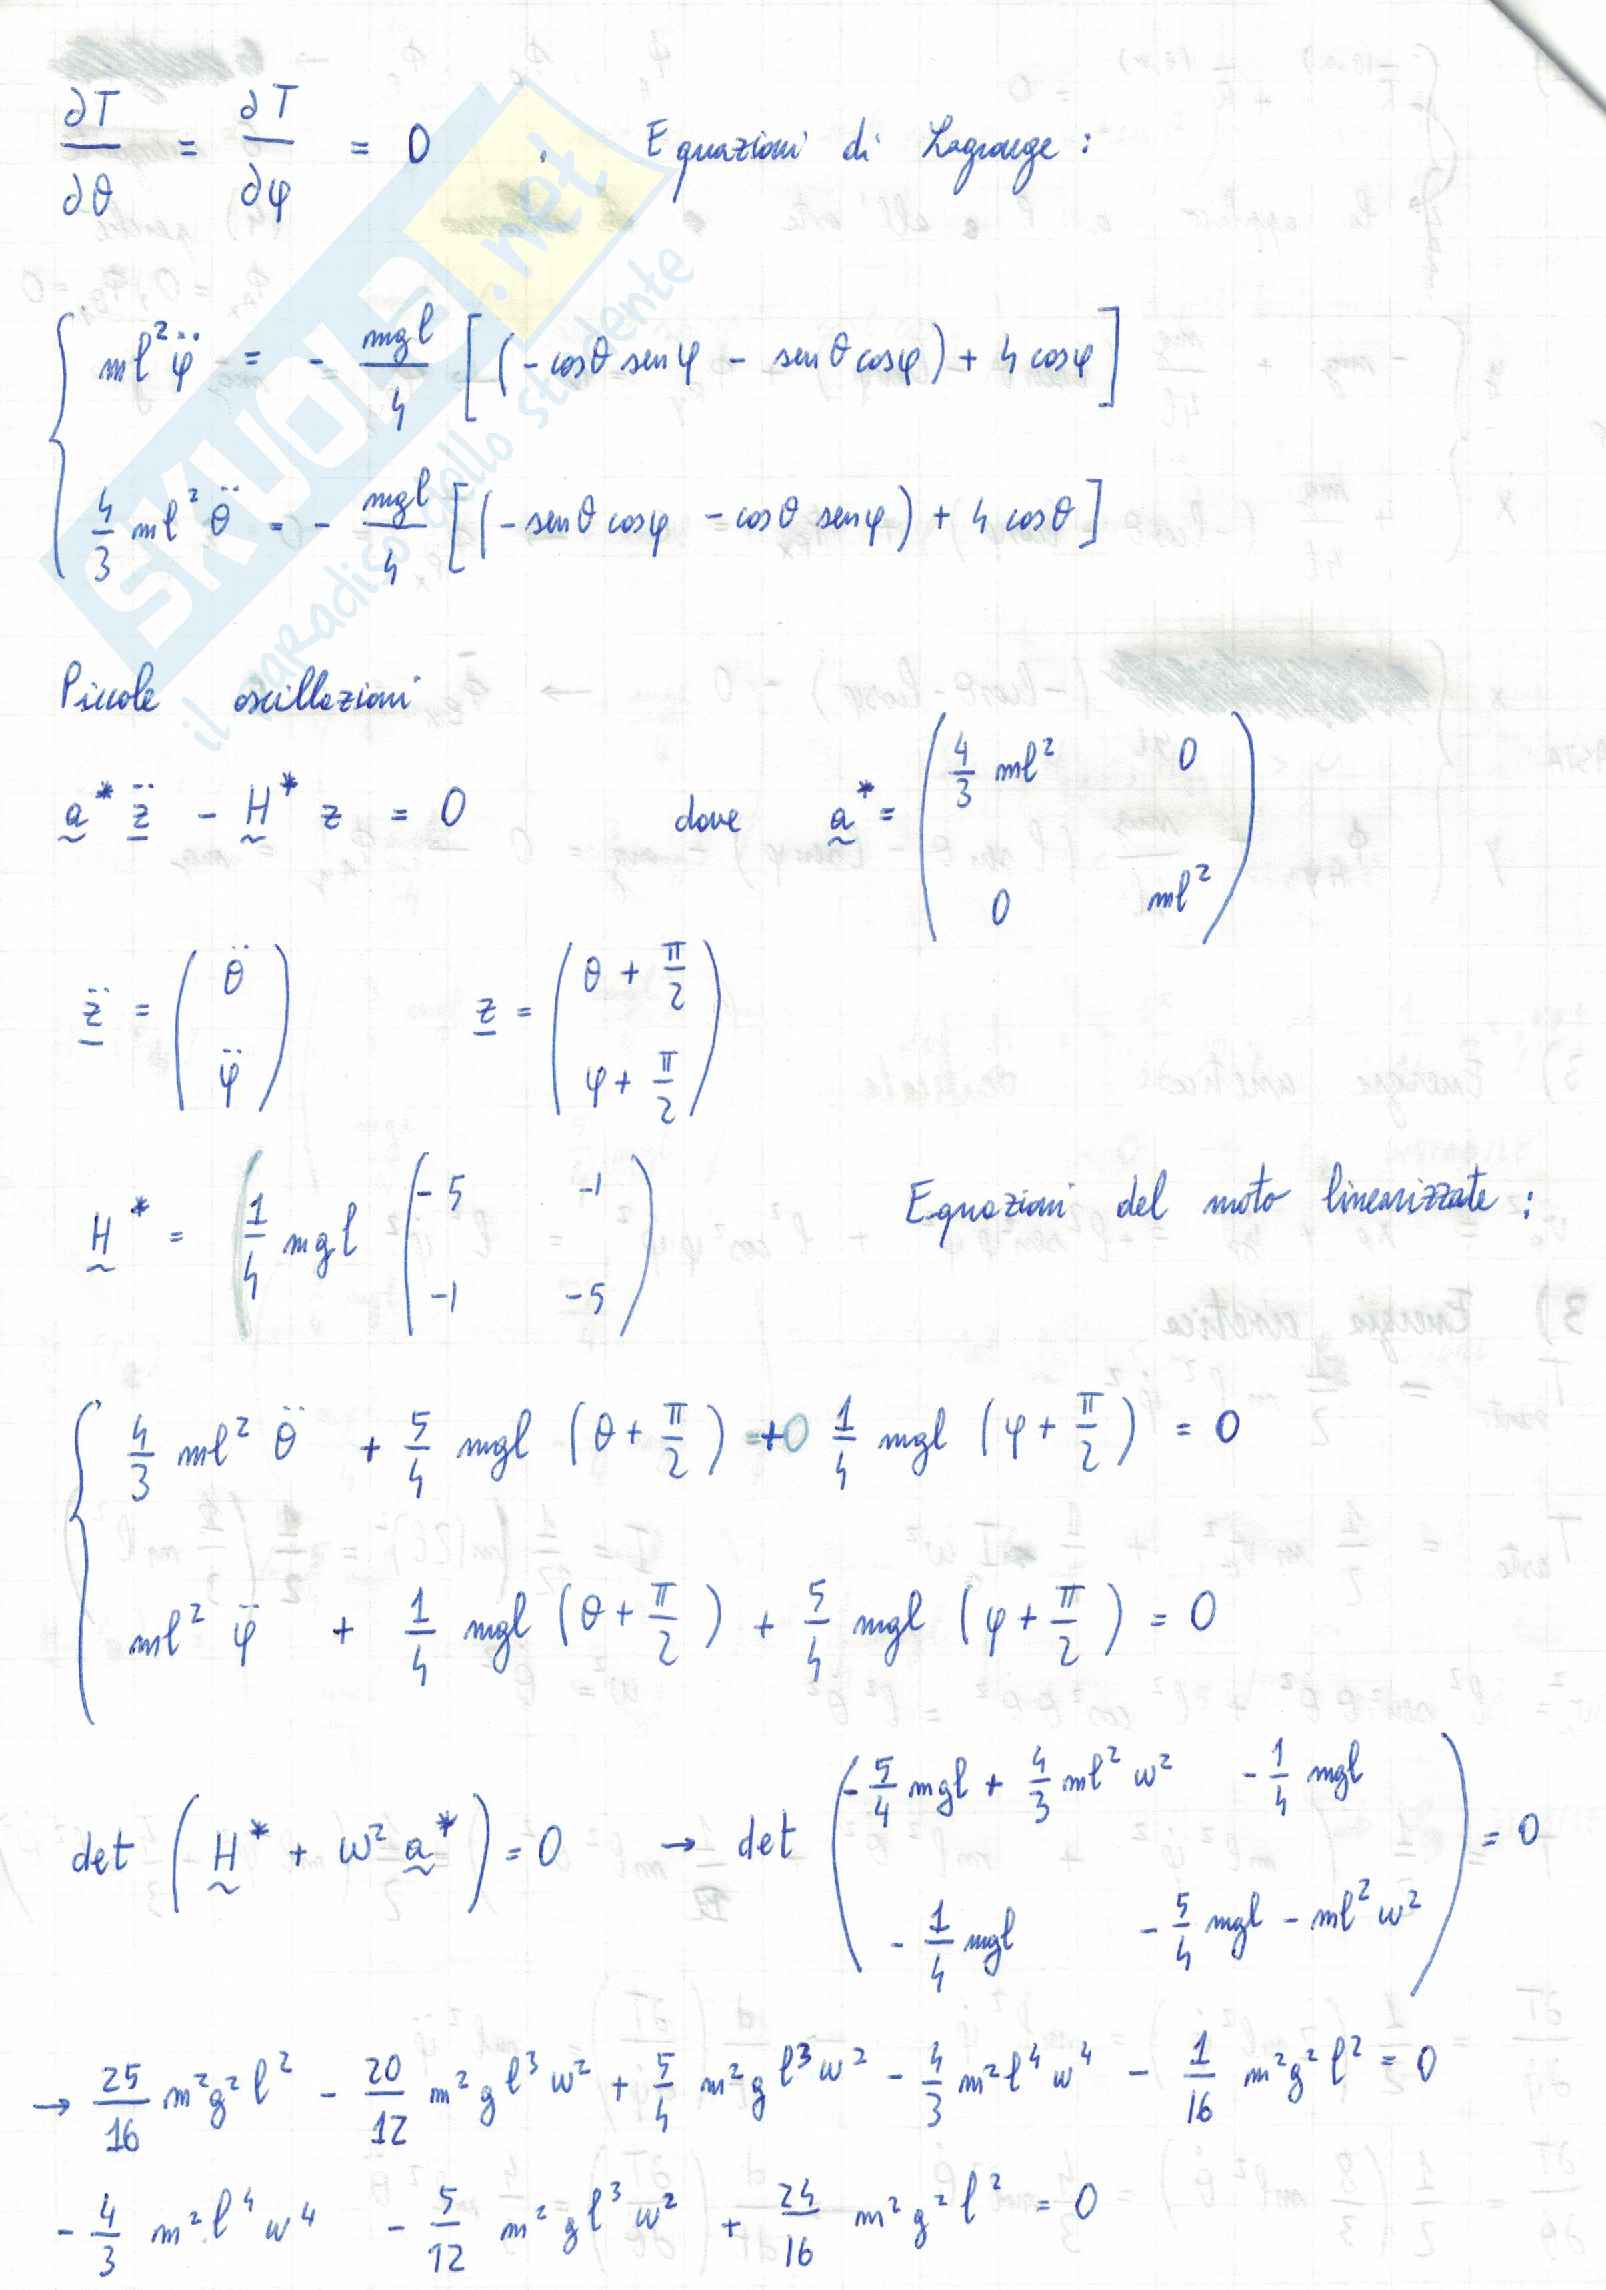 ∂T/∂θ = ∂T/∂φ = 0 . Equazioni di Lagrange :
{ ml² φ̈ = - mgl/4 [(- cosθ senφ - senθ cosφ) + 4 cosφ]
4/3 ml² θ̈ = - mgl/4 [(- senθ cosφ - cosθ senφ) + 4 cosθ]
Piccole oscillazioni
a* z̈ - H* z = 0 dove a* = ( 4/3 ml² 0
0 ml² )
z̈ = ( θ̈
φ̈ ) z = ( θ + π/2
φ + π/2 )
H* = 1/4 mgl ( -5 -1
-1 -5 ) Equazioni del moto linearizzate :
{ 4/3 ml² θ̈ + 5/4 mgl (θ + π/2) + 1/4 mgl (φ + π/2) = 0
ml² φ̈ + 1/4 mgl (θ + π/2) + 5/4 mgl (φ + π/2) = 0
det ( H* + w² a* ) = 0 → det ( - 5/4 mgl + 4/3 ml² w² - 1/4 mgl
- 1/4 mgl - 5/4 mgl - ml² w² ) = 0
→ 25/16 m²g²l² - 20/12 m²gl³w² + 5/4 m²gl³w² - 4/3 m²l⁴w⁴ - 1/16 m²g²l² = 0
- 4/3 m²l⁴w⁴ - 5/12 m²gl³w² + 24/16 m²g²l² = 0
SKUOLA.net
il paradiso dello studente